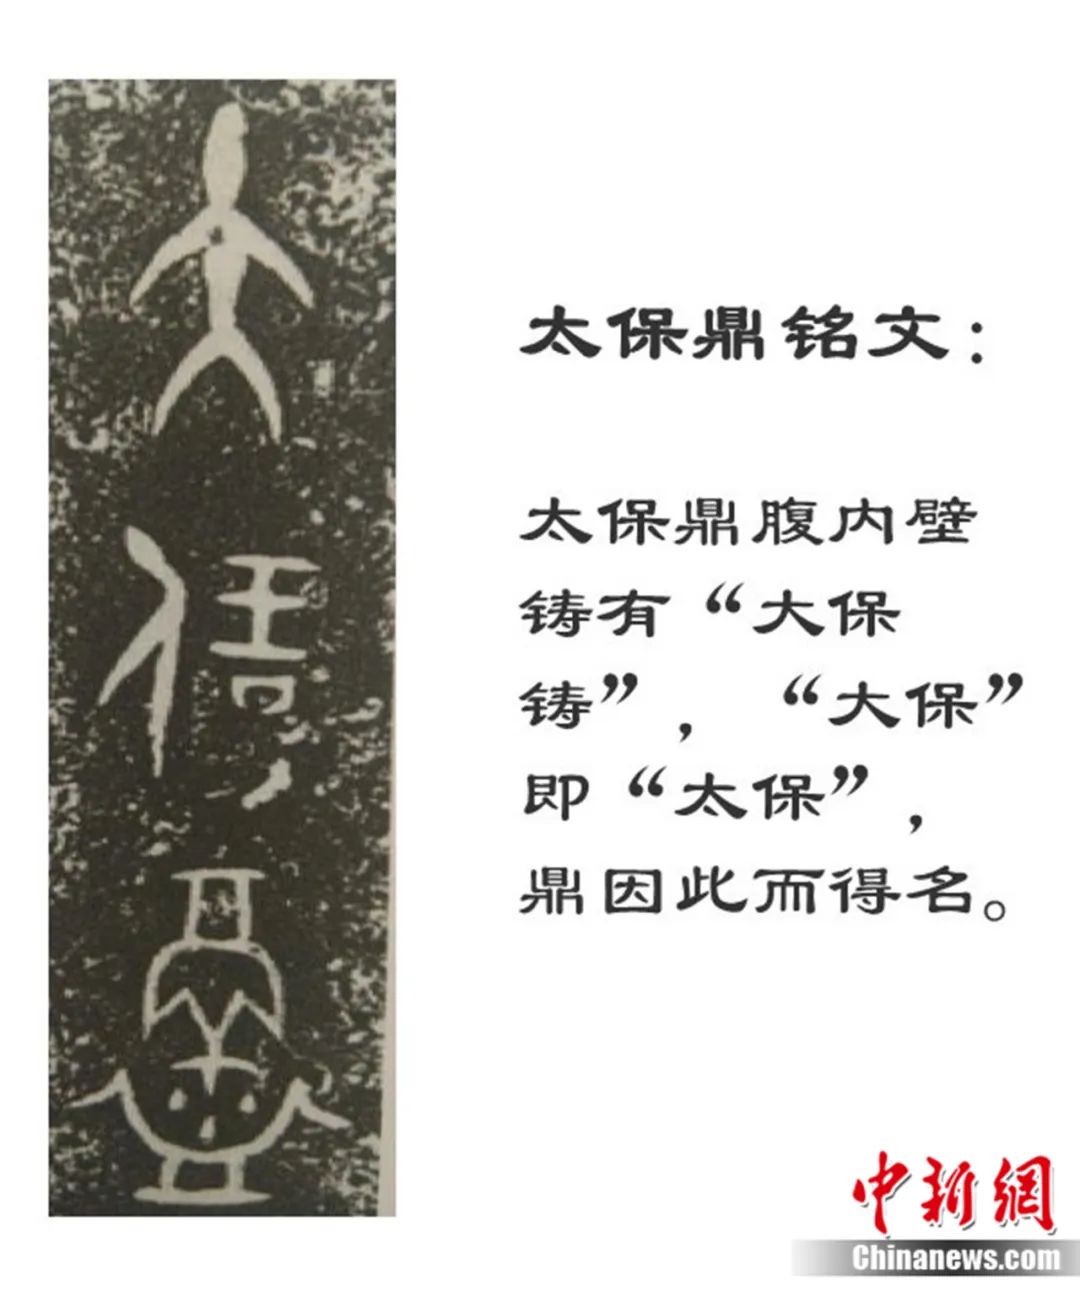 大
保
铸
太保鼎铭文：
太保鼎腹内壁
铸有“大保
铸”，“大保”
即“太保”，
鼎因此而得名。
中新網
Chinanews.com